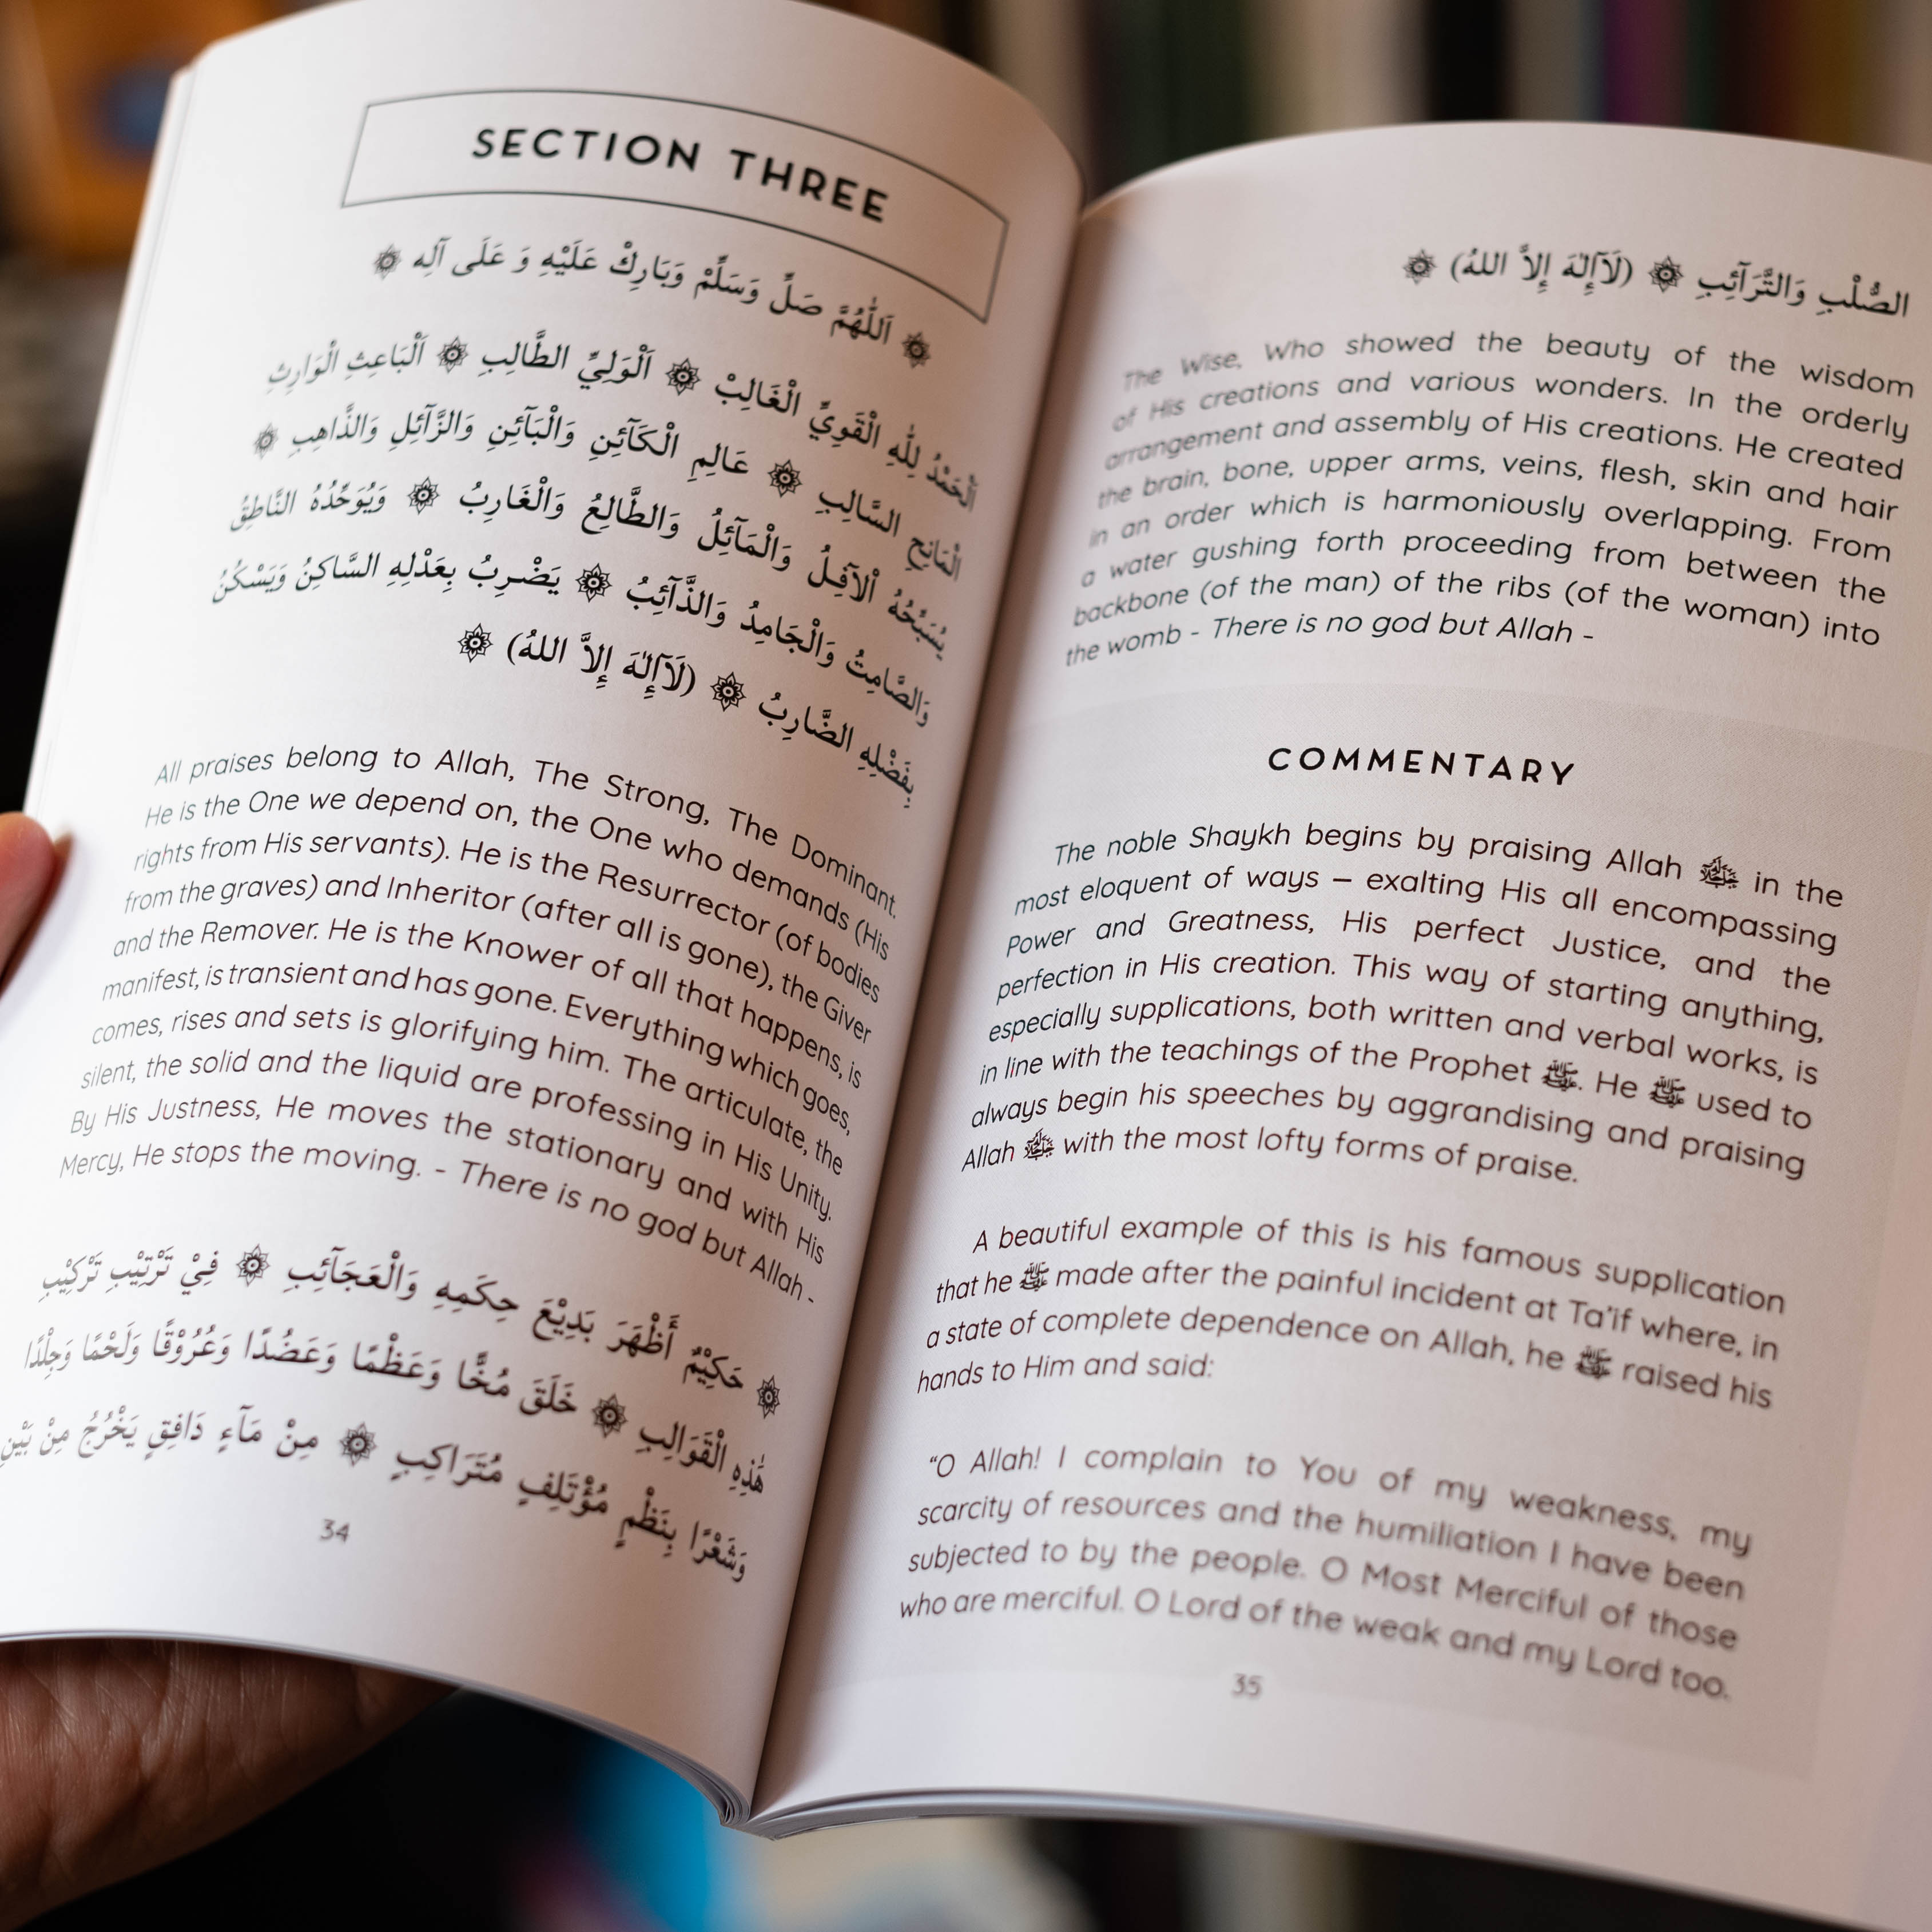 SECTION THREE
۞ اَللّٰهُمَّ صَلِّ وَسَلِّمْ وَبَارِكْ عَلَيْهِ وَ عَلَى آلِه ۞
اَلْحَمْدُ لِلّٰهِ الْقَوِيِّ الْغَالِبْ ۞ اَلْوَلِيِّ الطَّالِبِ ۞ اَلْبَاعِثِ الْوَارِثِ
الْمَانِحِ السَّالِبِ ۞ عَالِمِ الْكَآئِنِ وَالْبَآئِنِ وَالزَّآئِلِ وَالذَّاهِبِ ۞
يُسَبِّحُهُ الْآفِلُ وَالْمَآئِلُ وَالطَّالِعُ وَالْغَارِبُ ۞ وَيُوَحِّدُهُ النَّاطِقُ
وَالصَّامِتُ وَالْجَامِدُ وَالذَّآئِبُ ۞ يَضْرِبُ بِعَدْلِهِ السَّاكِنُ وَيَسْكُنُ
بِفَضْلِهِ الضَّارِبُ ۞ (لَآإِلٰهَ إِلاَّ اللهُ) ۞
All praises belong to Allah, The Strong, The Dominant.
He is the One we depend on, the One who demands (His
rights from His servants). He is the Resurrector (of bodies
from the graves) and Inheritor (after all is gone), the Giver
and the Remover. He is the Knower of all that happens, is
manifest, is transient and has gone. Everything which goes,
comes, rises and sets is glorifying him. The articulate, the
silent, the solid and the liquid are professing in His Unity.
By His Justness, He moves the stationary and with His
Mercy, He stops the moving. - There is no god but Allah -
۞ حَكِيْمٌ أَظْهَرَ بَدِيْعَ حِكَمِهِ وَالْعَجَآئِبِ ۞ فِيْ تَرْتِيْبِ تَرْكِيْبِ
هٰذِهِ الْقَوَالِبِ ۞ خَلَقَ مُخًّا وَعَظْمًا وَعَضُدًا وَعُرُوْقًا وَلَحْمًا وَجِلْدًا
وَشَعْرًا بِنَظْمٍ مُؤْتَلِفٍ مُتَرَاكِبٍ ۞ مِنْ مَآءٍ دَافِقٍ يَخْرُجُ مِنْ بَيْنِ
34
الصُّلْبِ وَالتَّرَآئِبِ ۞ (لَآإِلٰهَ إِلاَّ اللهُ) ۞
The Wise, Who showed the beauty of the wisdom
of His creations and various wonders. In the orderly
arrangement and assembly of His creations. He created
the brain, bone, upper arms, veins, flesh, skin and hair
in an order which is harmoniously overlapping. From
a water gushing forth proceeding from between the
backbone (of the man) of the ribs (of the woman) into
the womb - There is no god but Allah -
COMMENTARY
The noble Shaykh begins by praising Allah ﷻ in the
most eloquent of ways – exalting His all encompassing
Power and Greatness, His perfect Justice, and the
perfection in His creation. This way of starting anything,
especially supplications, both written and verbal works, is
in line with the teachings of the Prophet ﷺ. He ﷺ used to
always begin his speeches by aggrandising and praising
Allah ﷻ with the most lofty forms of praise.
A beautiful example of this is his famous supplication
that he ﷺ made after the painful incident at Ta'if where, in
a state of complete dependence on Allah, he ﷺ raised his
hands to Him and said:
“O Allah! I complain to You of my weakness, my
scarcity of resources and the humiliation I have been
subjected to by the people. O Most Merciful of those
who are merciful. O Lord of the weak and my Lord too.
35